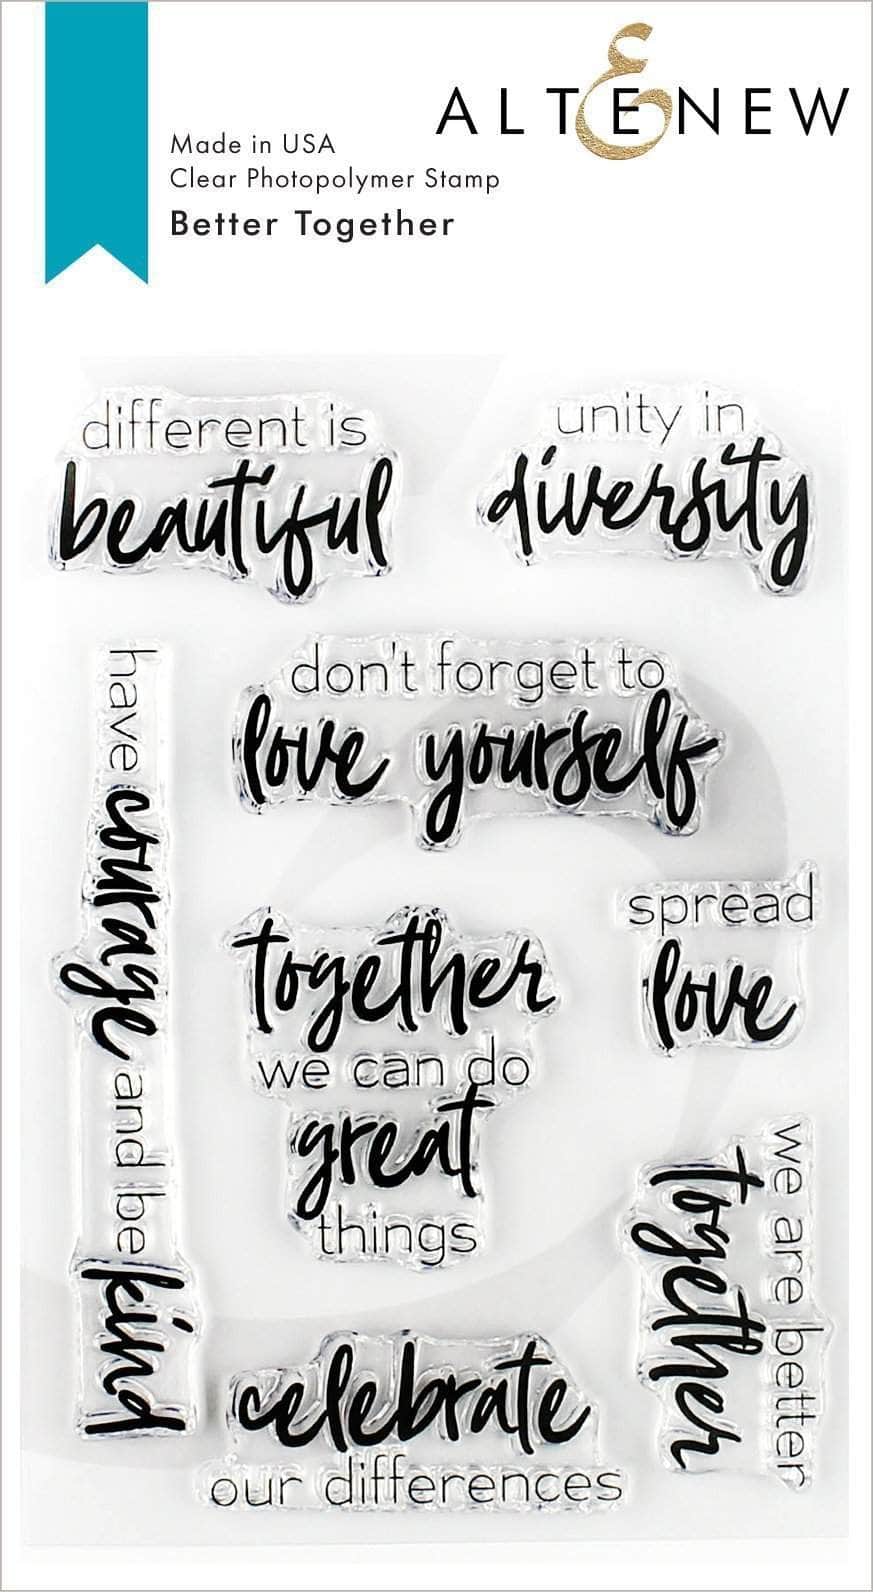 ALTENEW
Made in USA
Clear Photopolymer Stamp
Better Together
different is
beautiful
unity in
diversity
have courage and be kind
don't forget to
love yourself
spread
love
together
we can do
great
things
we are better
together
celebrate
our differences